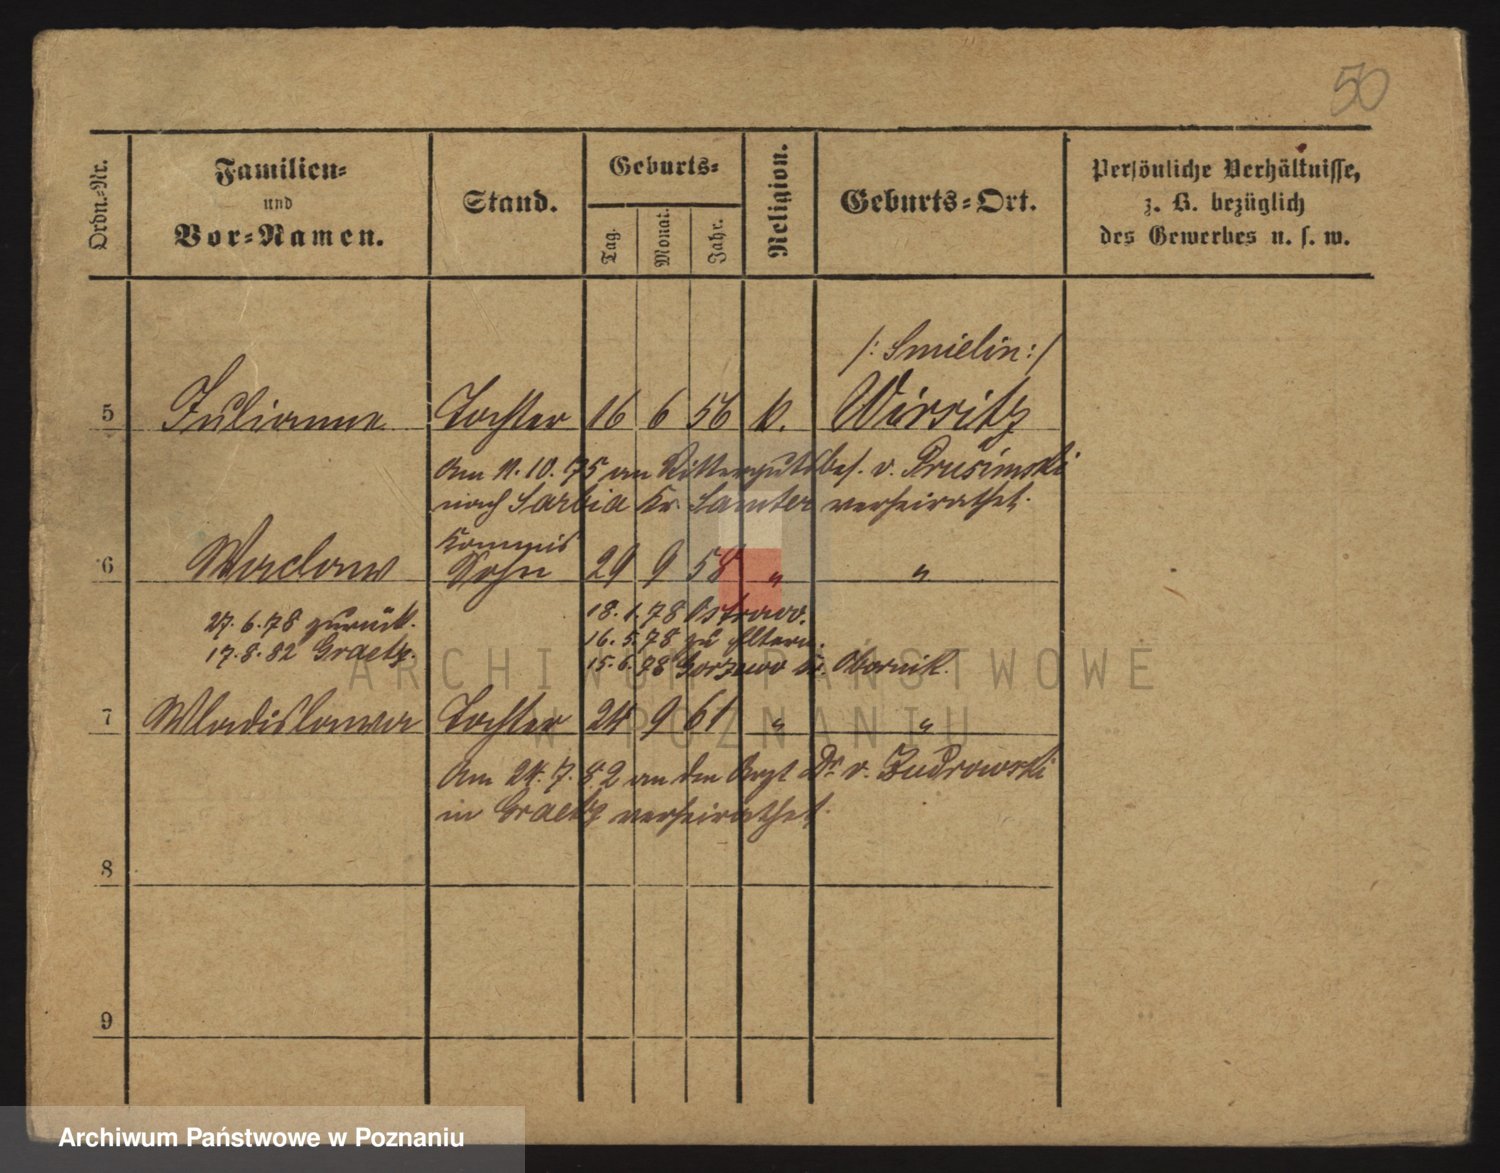 50
Ordn.-Nr.
Familien-
und
Vor-Namen.
Stand.
Geburts-
Tag.
Monat.
Jahr.
Religion.
Geburts-Ort.
Persönliche Verhältnisse,
z. B. bezüglich
des Gewerbes u. s. w.
/: Smielin :/
5 Julianna Tochter 16 6 56 k. Wirsitz
Am 11. 10. 75 an Rittergutsbes. v. Prusimski
nach Sarbia Kr. Samter verheirathet.
Kommis
6 Waclaw Sohn 29 9 58 " "
27. 6. 78 zurück.
17. 8. 82 Graetz.
18. 1. 78 Ostrowo.
16. 5. 78 zu Eltern.
15. 6. 78 Gorzewo Kr. Obornik.
7 Wladislawa Tochter 24 9 61 " "
Am 24. 7. 82 an den Arzt Dr. v.
in Graetz verheirathet.
8
9
ARCHIWUM PAŃSTWOWE
W POZNANIU
Archiwum Państwowe w Poznaniu